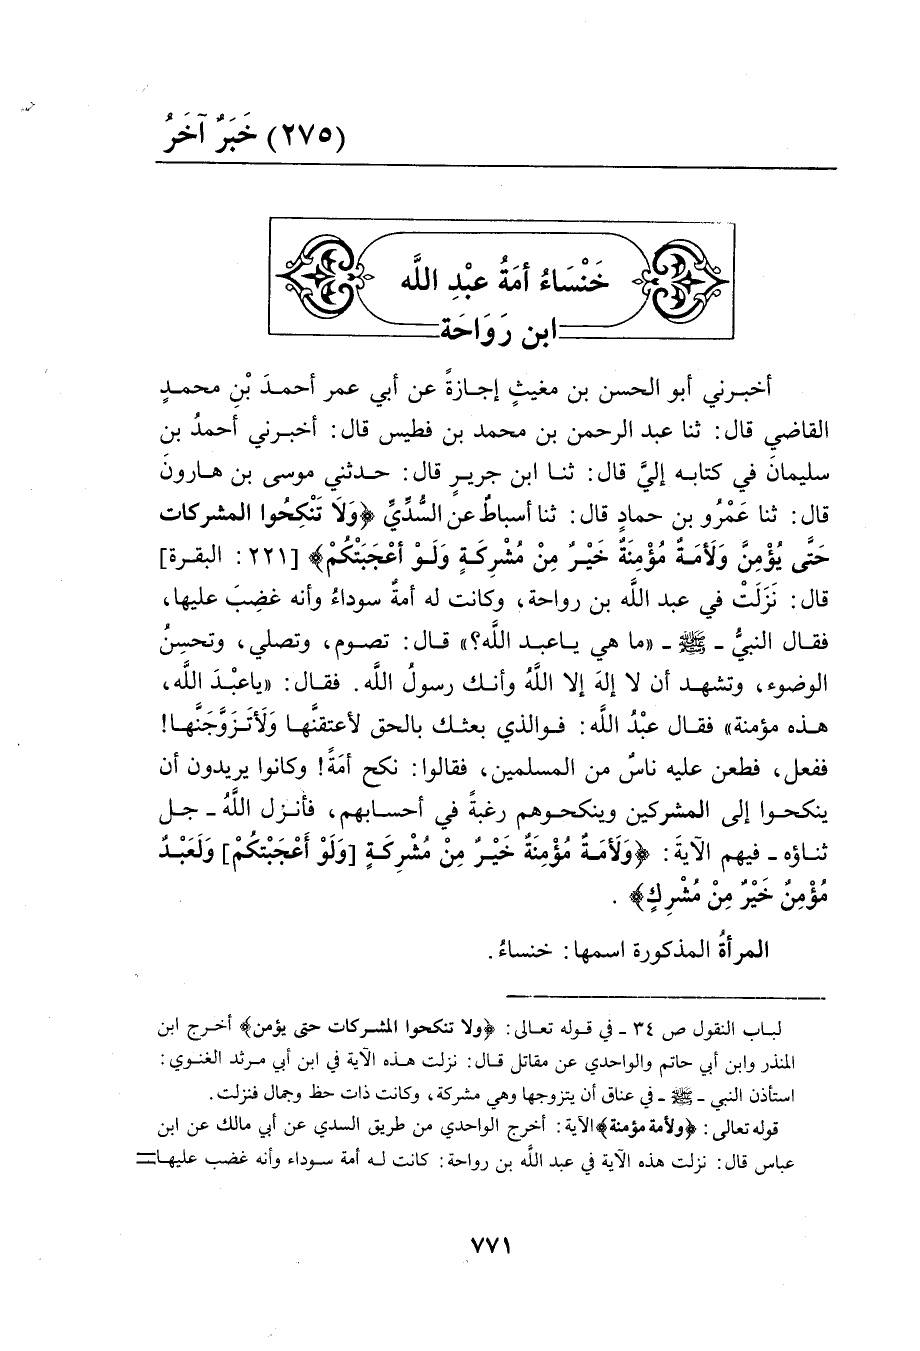 (٢٧٥) خَبَرٌ آخَرُ
خَنْسَاءُ أمَةُ عبْدِ اللَّه
ابن رَوَاحَة
أخبـرني أبو الحسن بن مغيثٍ إجـازةً عن أبي عمر أحمـدَ بْنِ محمـدٍ
القاضي قال: ثنا عبد الرحمن بن محمد بن فطيس قال: أخبـرني أحمدُ بن
سليمانَ في كتابـه إليَّ قال: ثنـا ابن جريـرٍ قال: حـدثني موسى بن هـارونَ
قال: ثنا عَمْرُو بن حمادٍ قال: ثنا أسباطٌ عن السُّدِّيِّ ﴿وَلَا تَنْكِحُوا المشركات
حَتَّى يُؤْمِنَّ وَلَأمَـةٌ مُؤْمِنَةٌ خَيْـرٌ مِنْ مُشْرِكَـةٍ وَلَـوْ أعْجَبَتْكُمْ﴾ [٢٢١ : البقـرة]
قال: نَزَلَتْ في عبد اللَّه بن رواحة، وكانت له أمةٌ سوداءُ وأنه غضِبَ عليها،
فقـال النبيُّ ـ ﷺ ـ «ما هي يـاعبـد اللَّه؟» قـال: تصـوم، وتصلي، وتحسِنُ
الوضوء، وتشهـد أن لا إلهَ إلا اللَّهُ وأنـك رسولُ اللَّه. فقـال: «ياعبْدَ اللَّه،
هـذه مؤمنة» فقـال عبْدُ اللَّه: فـوالذي بعثـك بالحق لأعتقنَّهـا وَلَأتـزوَّجَنَّهـا!
ففعل، فطعن عليه ناسٌ من المسلمين، فقالوا: نكح أمَةً! وكانوا يريدون أن
ينكحـوا إلى المشركين وينكحـوهم رغبةً في أحسابهم، فأنـزل اللَّهُ ـ جـل
ثنـاؤه ـ فيهم الآيةَ: ﴿وَلَأمَـةٌ مُؤْمِنَةٌ خَيْـرٌ مِنْ مُشْرِكَـةٍ [وَلَوْ أعْجَبْتكُمْ] وَلَعَبْـدٌ
مُؤْمِنٌ خَيْرٌ مِنْ مُشْرِكٍ﴾ .
المرأةُ المذكورة اسمها: خنساءُ.
لبـاب النقول ص ٣٤ ـ في قـوله تعـالى: ﴿ولا تنكحوا المشـركات حتى يؤمن﴾ أخـرج ابن
المنذر وابن أبي حاتم والواحدي عن مقاتل قـال: نزلت هـذه الآية في ابن أبي مـرثد الغنـوي:
استأذن النبي ـ ﷺ ـ في عناق أن يتزوجها وهي مشركة، وكانت ذات حظ وجمال فنزلت.
قوله تعالى: ﴿ولأمة مؤمنة﴾الآية: أخرج الواحدي من طريق السدي عن أبي مالك عن ابن
عباس قال: نزلت هذه الآية في عبد اللَّه بن رواحة: كانت لـه أمة سـوداء وأنه غضب عليهـا=
٧٧١